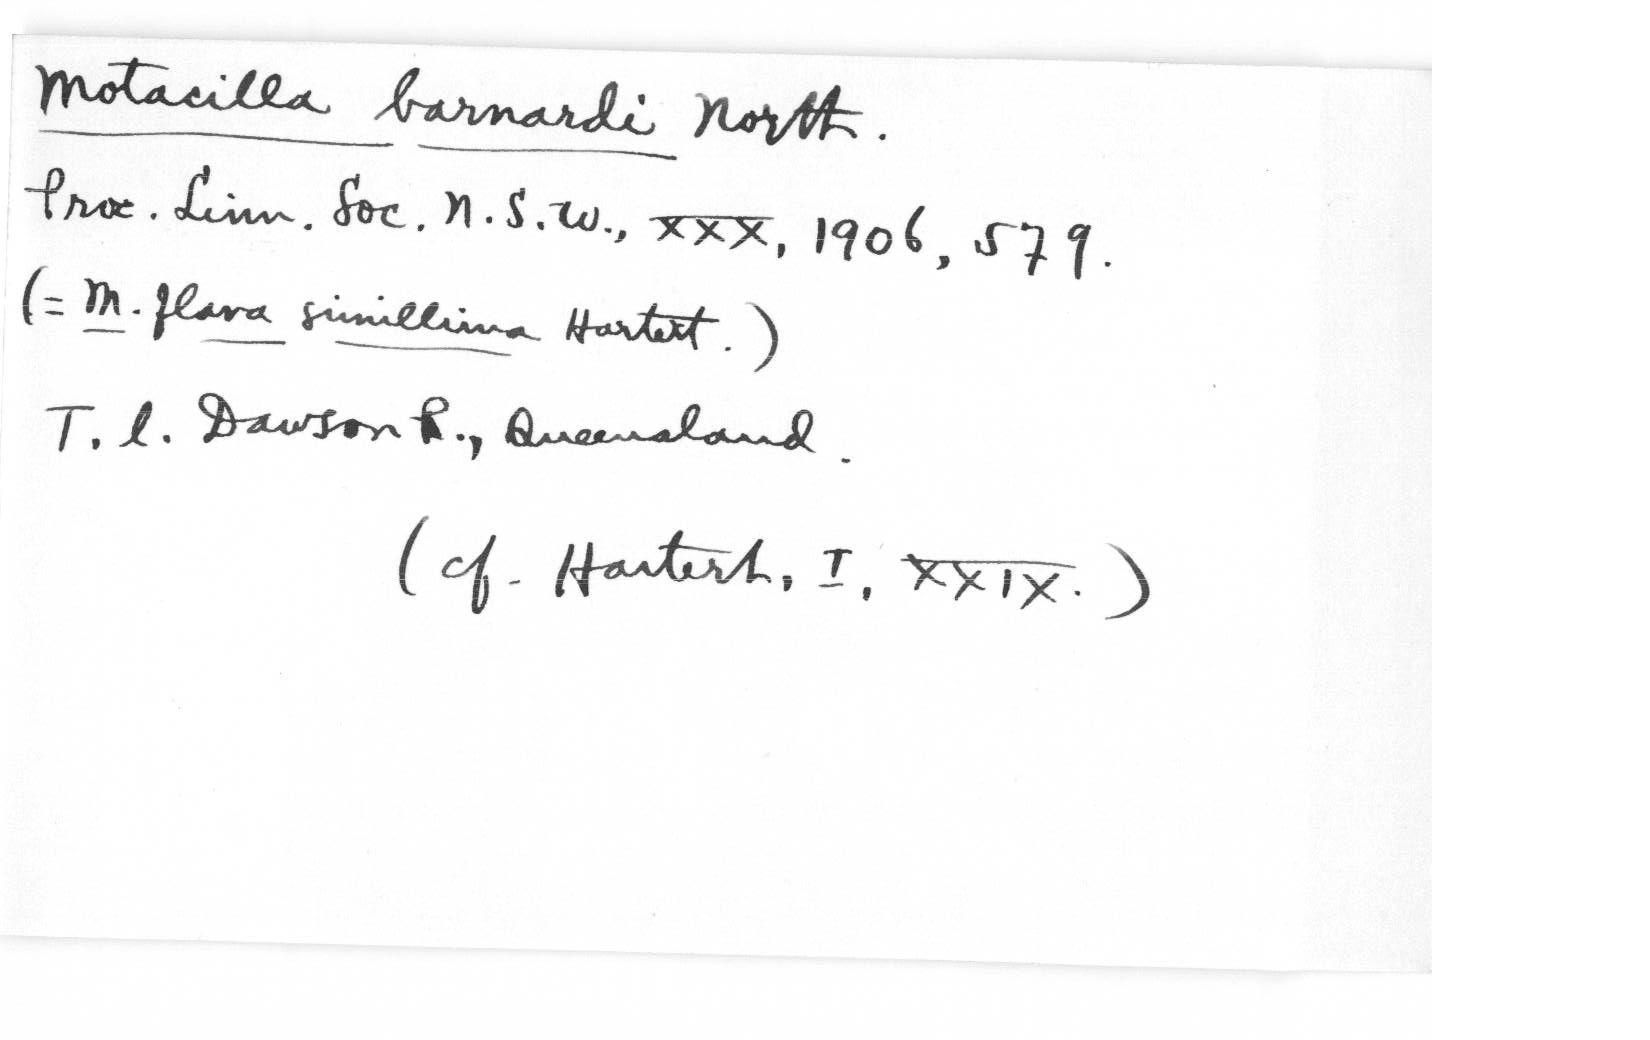 Motacilla barnardi North.
Proc. Linn. Soc. N.S.W., XXX, 1906, 579.
(= M. flava simillima Hartert.)
T. l. Dawson R., Queensland.
(cf. Hartert, I, XXIX.)